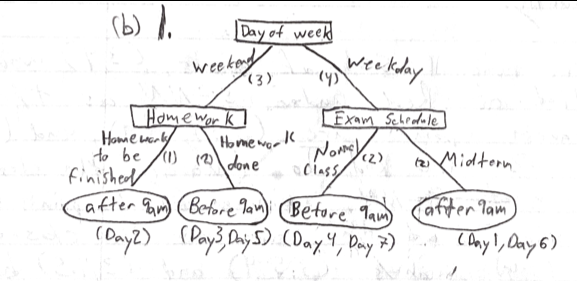 (b) 1.
Day of week
weekend (3) (4) Weekday
Homework Exam Schedule
Homework to be finished (1) (2) Homework done
Normal Class (2) (2) Midterm
after 9am Before 9am Before 9am after 9am
(Day2) (Day3, Day5) (Day4, Day 7) (Day1, Day6)